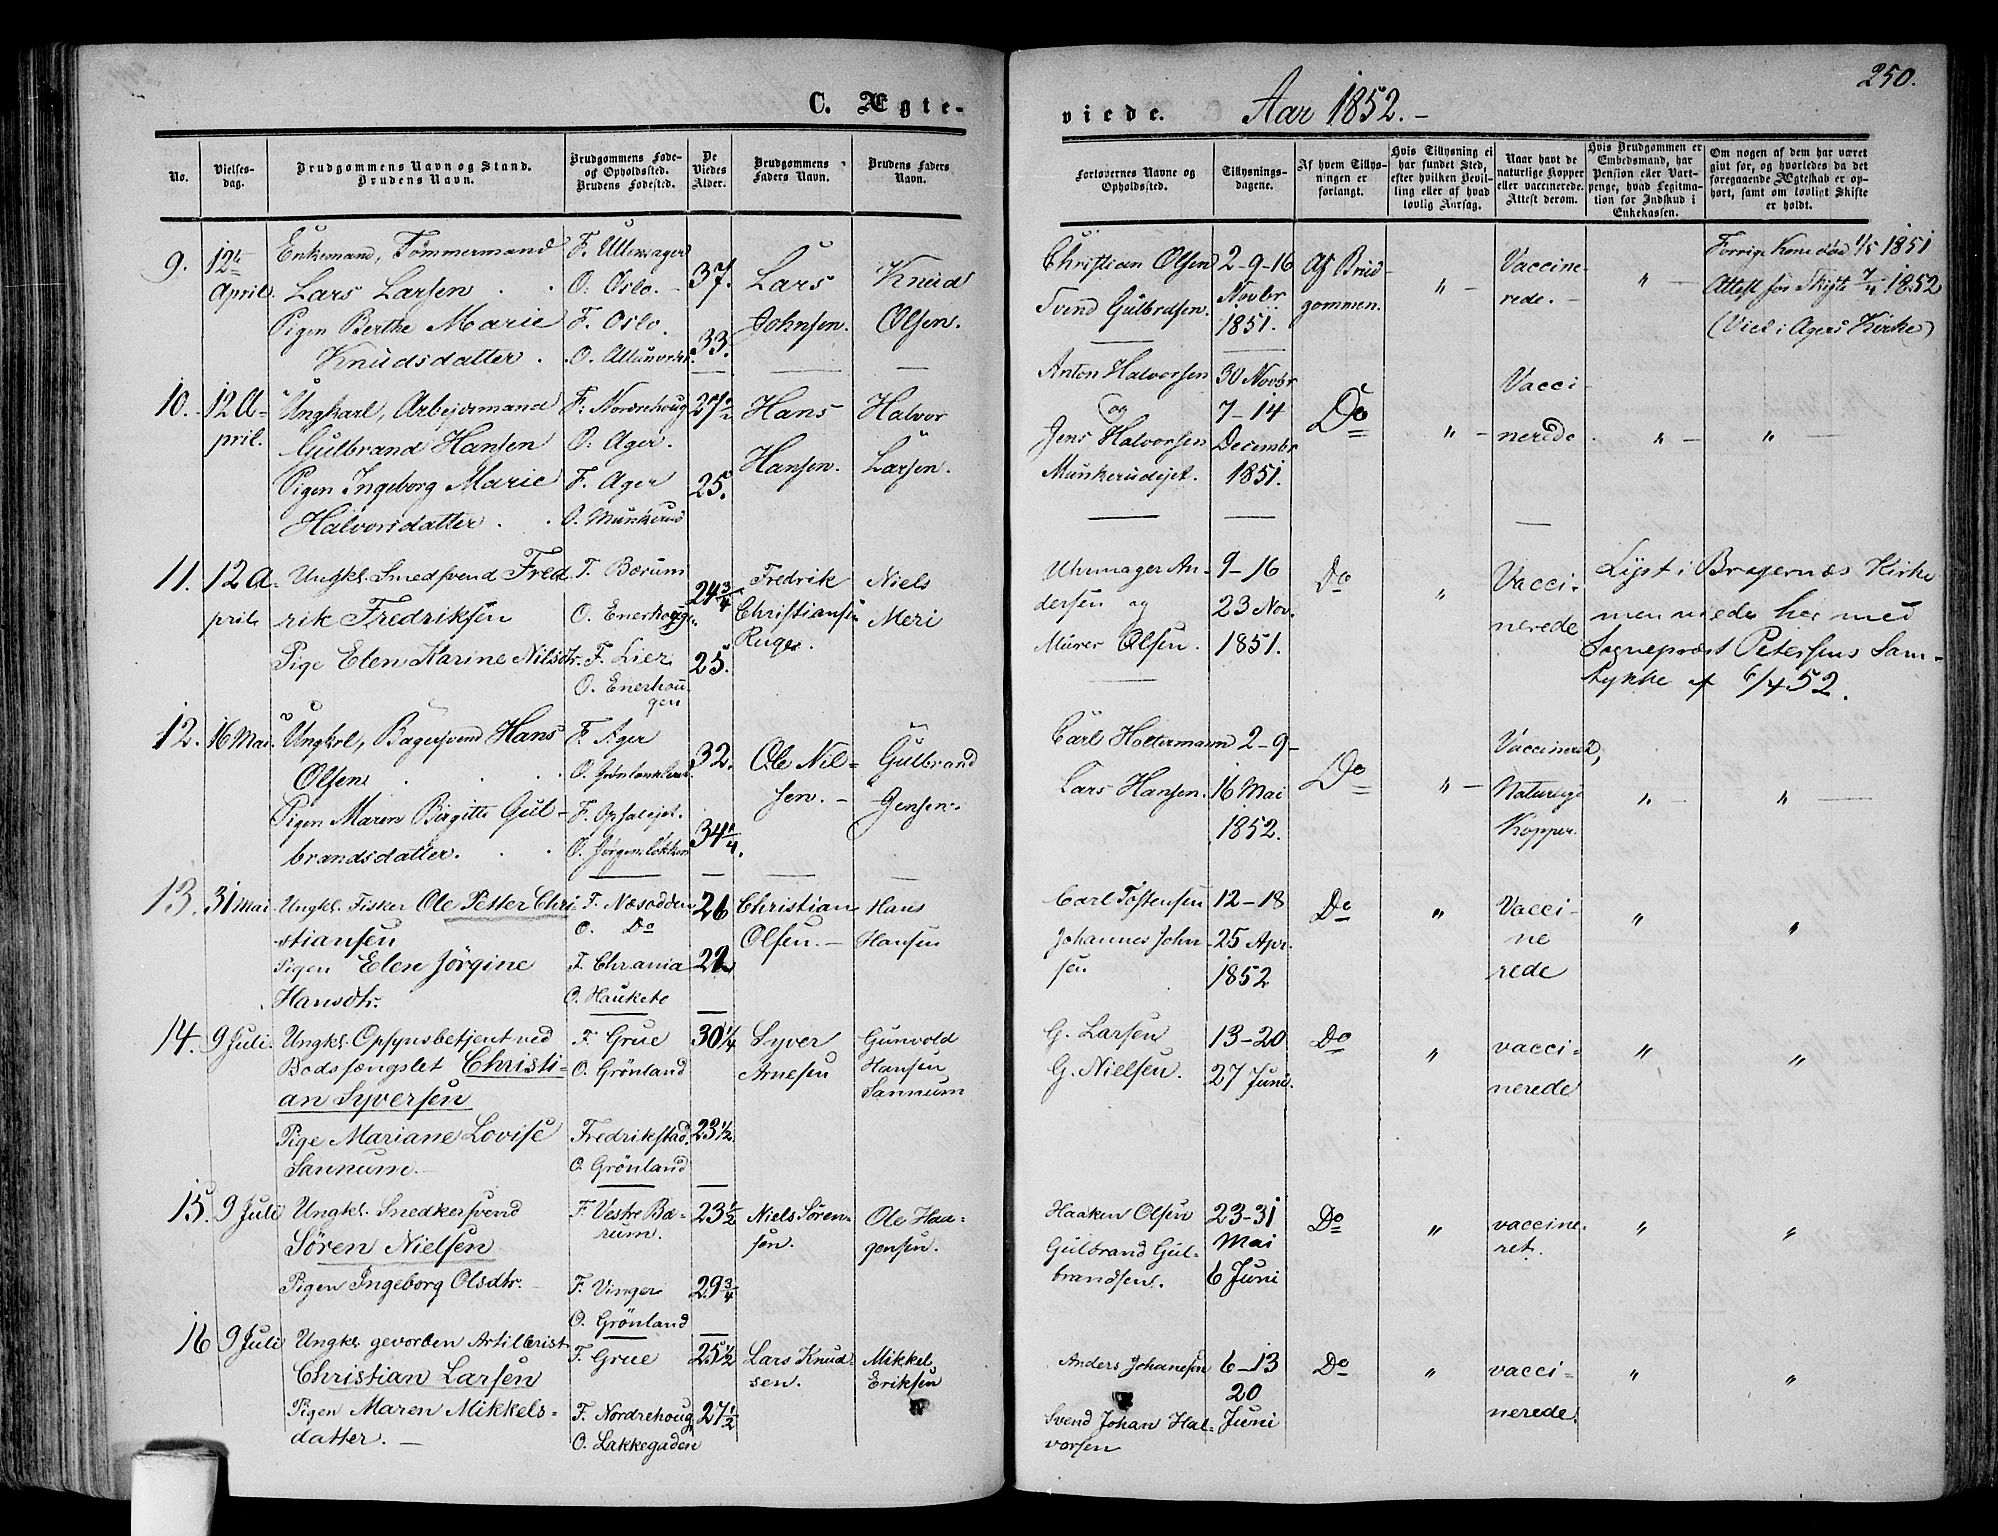 250.
C. Ægte-
viede.
Aar 1852.-
No.
Vielses-
dag.
Brudgommens Navn og Stand.
Brudens Navn.
Brudgommens Føde-
og Opholdssted.
Brudens Fødested.
De
Viedes
Alder.
Brudgommens
Faders Navn.
Brudens Faders
Navn.
Forlovernes Navne og
Opholdssted.
Tillysnings-
dagene.
Af hvem Tillys-
ningen er
forlangt.
Hvis Tillysning ei
har fundet Sted,
efter hvilken Bevil-
ling eller af hvad
lovlig Aarsag.
Naar havt de
naturlige Kopper
eller vaccinerede.
Attest derom.
Hvis Brudgommen er
Embedsmand, har
Pension eller Vart-
penge, hvad Legitima-
tion for Indskud i
Enkekassen.
Om nogen af dem har været
givt før, og hvorledes da det
foregaaende Ægteskab er op-
hørt, samt om lovligt Skifte
er holdt.
9.
12te
April.
Enkemand, Tømmermand
Lars Larsen
Pigen Berthe Marie
Knudsdatter
F. Ullensager
O. Oslo.
F. Oslo.
37.
33.
Lars
Johnsen.
Knud
Olsen.
Christian Olsen
Svend Gulbrdsen.
2-9-16
Novbr
1851.
Af Brud
gommen.
" -
Vaccine-
rede.-
" -
Forrige Kone død 1/5 1851
Attest for Skifte 7/4 1852
(Viet i Agers Kirke)
10.
12 A-
pril.
Ungkarl, Arbejdsmand
Gulbrand Hansen
Pigen Ingeborg Marie
Halvorsdatter
F. Norderhoug
O. Ager.
F. Ager
O. Munkerud
27 1/2
25.
Hans
Hansen.
Halvor
Larsen.
Anton Halvorsen
og
Jens Halvorsen
Munkerudejet.
30 Novbr
7-14
Decembr
1851.
Do
" -
Vacci-
nerede.
" -
" -
11.
12 A-
pril.
Ungkl. Smedsvend Fred
rik Fredriksen
Pige Elen Karine Nilsdtr.
F. Bærum
O. Enerhougn.
F. Lier
O. Enerhou
gen
24 3/4
25.
Fredrik
Christiansen
Ruge.
Niels
Meri
Uhrmager An-
dersen og
Murer Olsen.
9-16
23 Nov.
1851.
Do
"
Vacci-
nerede
Lyst i Bragernæs Kirke
men viede her med
Sognepræst Petersens Sam-
tykke af 6/4 52.
12.
16 Mai
Ungkrl, Bagersvend Hans
Olsen
Pigen Maren Birgitte Gul-
brandsdatter.
F. Ager
O. Grønlandsleret
F. Opsalejet.
O. Jørgensløkken
32.
34 1/4
Ole Nil-
sen.-
Gulbrand
Jensen.
Carl Holtermann
Lars Hansen.
2-9-
16 Mai
1852.
Do
" -
Vaccinered,
Naturlige
Kopper.
" -
" -
13.
31 Mai
Ungkl. Fisker Ole Petter Chri
stiansen
Pigen Elen Jørgine
Hansdtr.
F. Næsodden
O. Do
F. Chrania
O. Hauketo
26
22
Christian
Olsen.-
Hans
Hansen
Carl Tostensen
Johannes John-
sen
12-18
25 Apr.
1852
Do
"
Vacci-
ne
rede
"
"
14.
9 Juli.
Ungkl. Opsynsbetjent ved
Bodsfængslet Christi-
an Syversen
Pige Mariane Lovise
Sannum.-
F. Grue
O. Grönland
Fredrikstad.
O. Grönland
30 1/4
23 1/2
Syver
Arnesen
Gunvold
Hansen
Sannum
G. Larsen
G. Nielsen.
13-20
27 Juni.
Do
"
vacci-
nerede
"
"
15.
9 Juli
Ungkl. Snedkersvend
Sören Nielsen
Pigen Ingeborg Olsdtr.
F. Vestre Bæ-
rum.
F. Vinger
O. Grönland
23 1/2
29 3/4
Niels Sören-
sen.
Ole Haa-
gensen.
Haaken Olsen
Gulbrand Gul-
brandsen.
23-31
Mai
6 Juni
Do
"
vaccine-
ret.
"
"
16
9 Juli
Ungkl. gevorben Artillerist
Christian Larsen
Pigen Maren Mikkels-
datter.-
F. Grue
F. Nordrehoug
O. Lakkegaden
25 1/2
27 1/2
Lars Knud
sen.
Mikkel
Eriksen
Anders Johanesen
Svend Johan Hal-
vorsen
6-13
20
Juni
Do
"
vacci-
nerede.
"
"